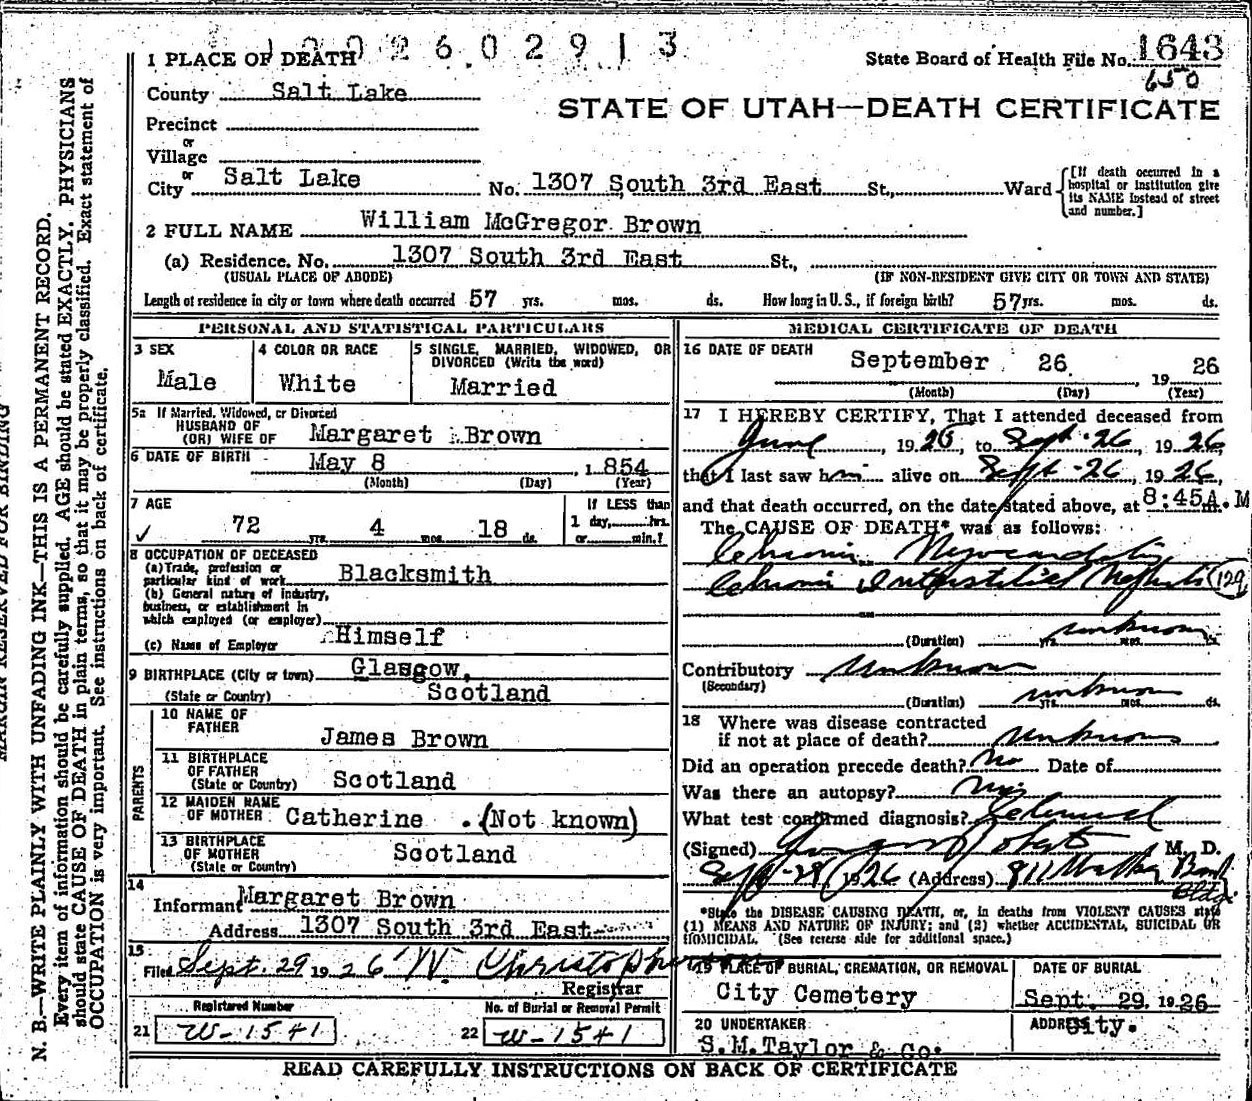 1002602913
State Board of Health File No. 1643
650
1 PLACE OF DEATH
County Salt Lake
STATE OF UTAH—DEATH CERTIFICATE
Precinct
or
Village
or
City Salt Lake No. 1307 South 3rd East St., Ward
[If death occurred in a hospital or institution give its NAME instead of street and number.]
2 FULL NAME William McGregor Brown
(a) Residence. No. 1307 South 3rd East St.,
(USUAL PLACE OF ABODE) (IF NON-RESIDENT GIVE CITY OR TOWN AND STATE)
Length of residence in city or town where death occurred 57 yrs. mos. ds. How long in U. S., if foreign birth? 57 yrs. mos. ds.
PERSONAL AND STATISTICAL PARTICULARS
3 SEX
Male
4 COLOR OR RACE
White
5 SINGLE, MARRIED, WIDOWED, OR
DIVORCED (Write the word)
Married
5a If Married, Widowed, or Divorced
HUSBAND OF
(OR) WIFE OF Margaret Brown
6 DATE OF BIRTH May 8, 1854
(Month) (Day) (Year)
7 AGE
72 yrs. 4 mos. 18 ds.
If LESS than
1 day, hrs.
or min.?
8 OCCUPATION OF DECEASED
(a) Trade, profession or
particular kind of work Blacksmith
(b) General nature of industry,
business, or establishment in
which employed (or employer)
(c) Name of Employer Himself
9 BIRTHPLACE (City or town) Glasgow,
(State or Country) Scotland
PARENTS
10 NAME OF
FATHER
James Brown
11 BIRTHPLACE
OF FATHER
(State or Country) Scotland
12 MAIDEN NAME
OF MOTHER Catherine . (Not known)
13 BIRTHPLACE
OF MOTHER
(State or Country) Scotland
14
Informant Margaret Brown
Address 1307 South 3rd East
15
Filed Sept. 29 1926 W Christopherson
Registrar
Registered Number
21 W-1541
No. of Burial or Removal Permit
22 W-1541
MEDICAL CERTIFICATE OF DEATH
16 DATE OF DEATH
September 26, 1926
(Month) (Day) (Year)
17 I HEREBY CERTIFY, That I attended deceased from
June, 1925, to Sept-26, 1926,
that I last saw him alive on Sept-26, 1926,
and that death occurred, on the date stated above, at 8:45A.m. M
The CAUSE OF DEATH* was as follows:
Chronic Myocarditis
Chronic Interstitial Nephritis 129
(Duration) yrs. unknown mos. ds.
Contributory unknown
(Secondary)
(Duration) unknown yrs. mos. ds.
18 Where was disease contracted
if not at place of death? unknown
Did an operation precede death? No Date of
Was there an autopsy? No
What test confirmed diagnosis?
(Signed) M. D.
Sept-28, 1926 (Address) 811 Walker Bank
Bldg.
*State the DISEASE CAUSING DEATH, or, in deaths from VIOLENT CAUSES state
(1) MEANS AND NATURE OF INJURY; and (2) whether ACCIDENTAL, SUICIDAL OR
HOMICIDAL. (See reverse side for additional space.)
19 PLACE OF BURIAL, CREMATION, OR REMOVAL
City Cemetery
DATE OF BURIAL
Sept. 29, 1926
20 UNDERTAKER
S.M.Taylor & Co.
ADDRESS
City.
READ CAREFULLY INSTRUCTIONS ON BACK OF CERTIFICATE
MARGIN RESERVED FOR BINDING
N. B.—WRITE PLAINLY WITH UNFADING INK—THIS IS A PERMANENT RECORD.
Every item of information should be carefully supplied. AGE should be stated EXACTLY. PHYSICIANS
should state CAUSE OF DEATH in plain terms, so that it may be properly classified. Exact statement of
OCCUPATION is very important. See instructions on back of certificate.